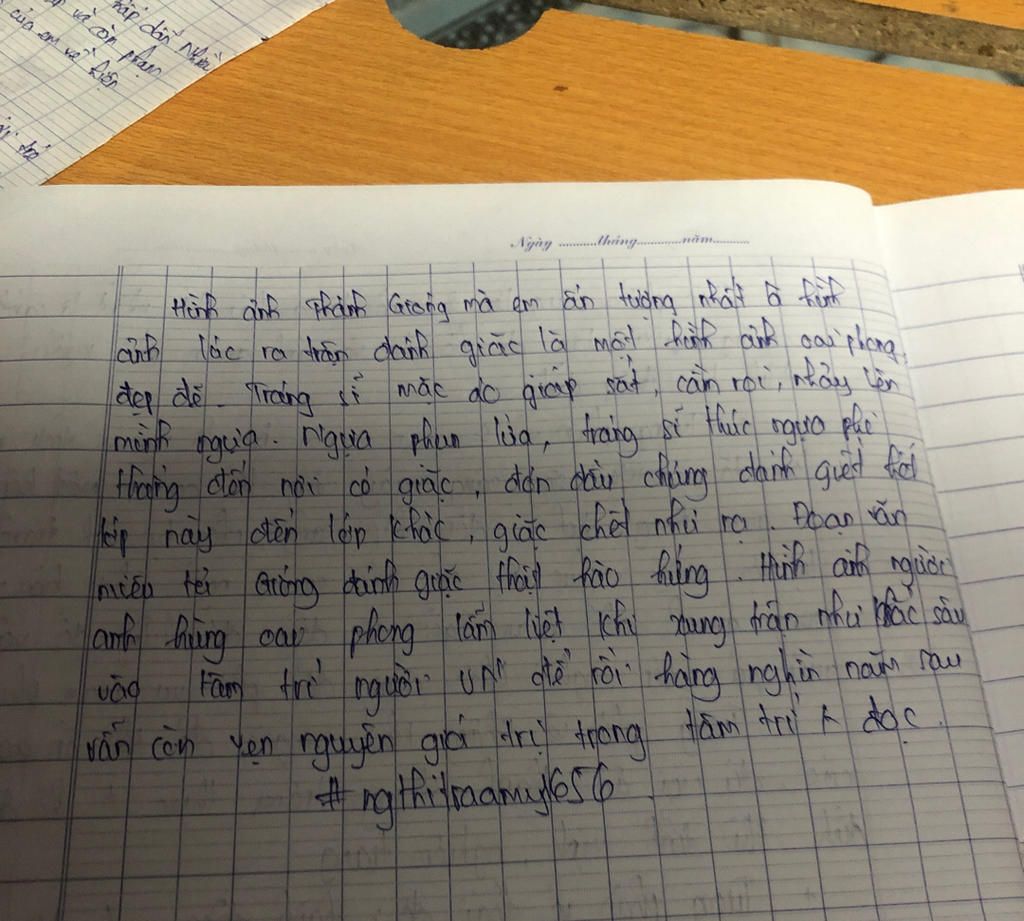 dẫn
và còn phạm
của em về hiện
Ngày ...........tháng...........năm...........
Hình ảnh Thánh Gióng mà em ấn tượng nhất là hình
ảnh lúc ra trận đánh giặc là một hình ảnh oai phong,
đẹp đẽ. Tráng sĩ mặc áo giáp sắt, cầm roi, nhảy lên
mình ngựa. Ngựa phun lửa, tráng sĩ thúc ngựa phi
thẳng đến nơi có giặc, đón đầu chúng đánh giết hết
lớp này đến lớp khác, giặc chết như rạ. Đoạn văn
miêu tả Gióng đánh giặc thật hào hứng. Hình ảnh người
anh hùng oai phong lẫm liệt khi xung trận như khắc sâu
vào tâm trí người VN để rồi hàng nghìn năm sau
vẫn còn vẹn nguyên giá trị trong tâm trí đọc.
# ngthitraamy1656